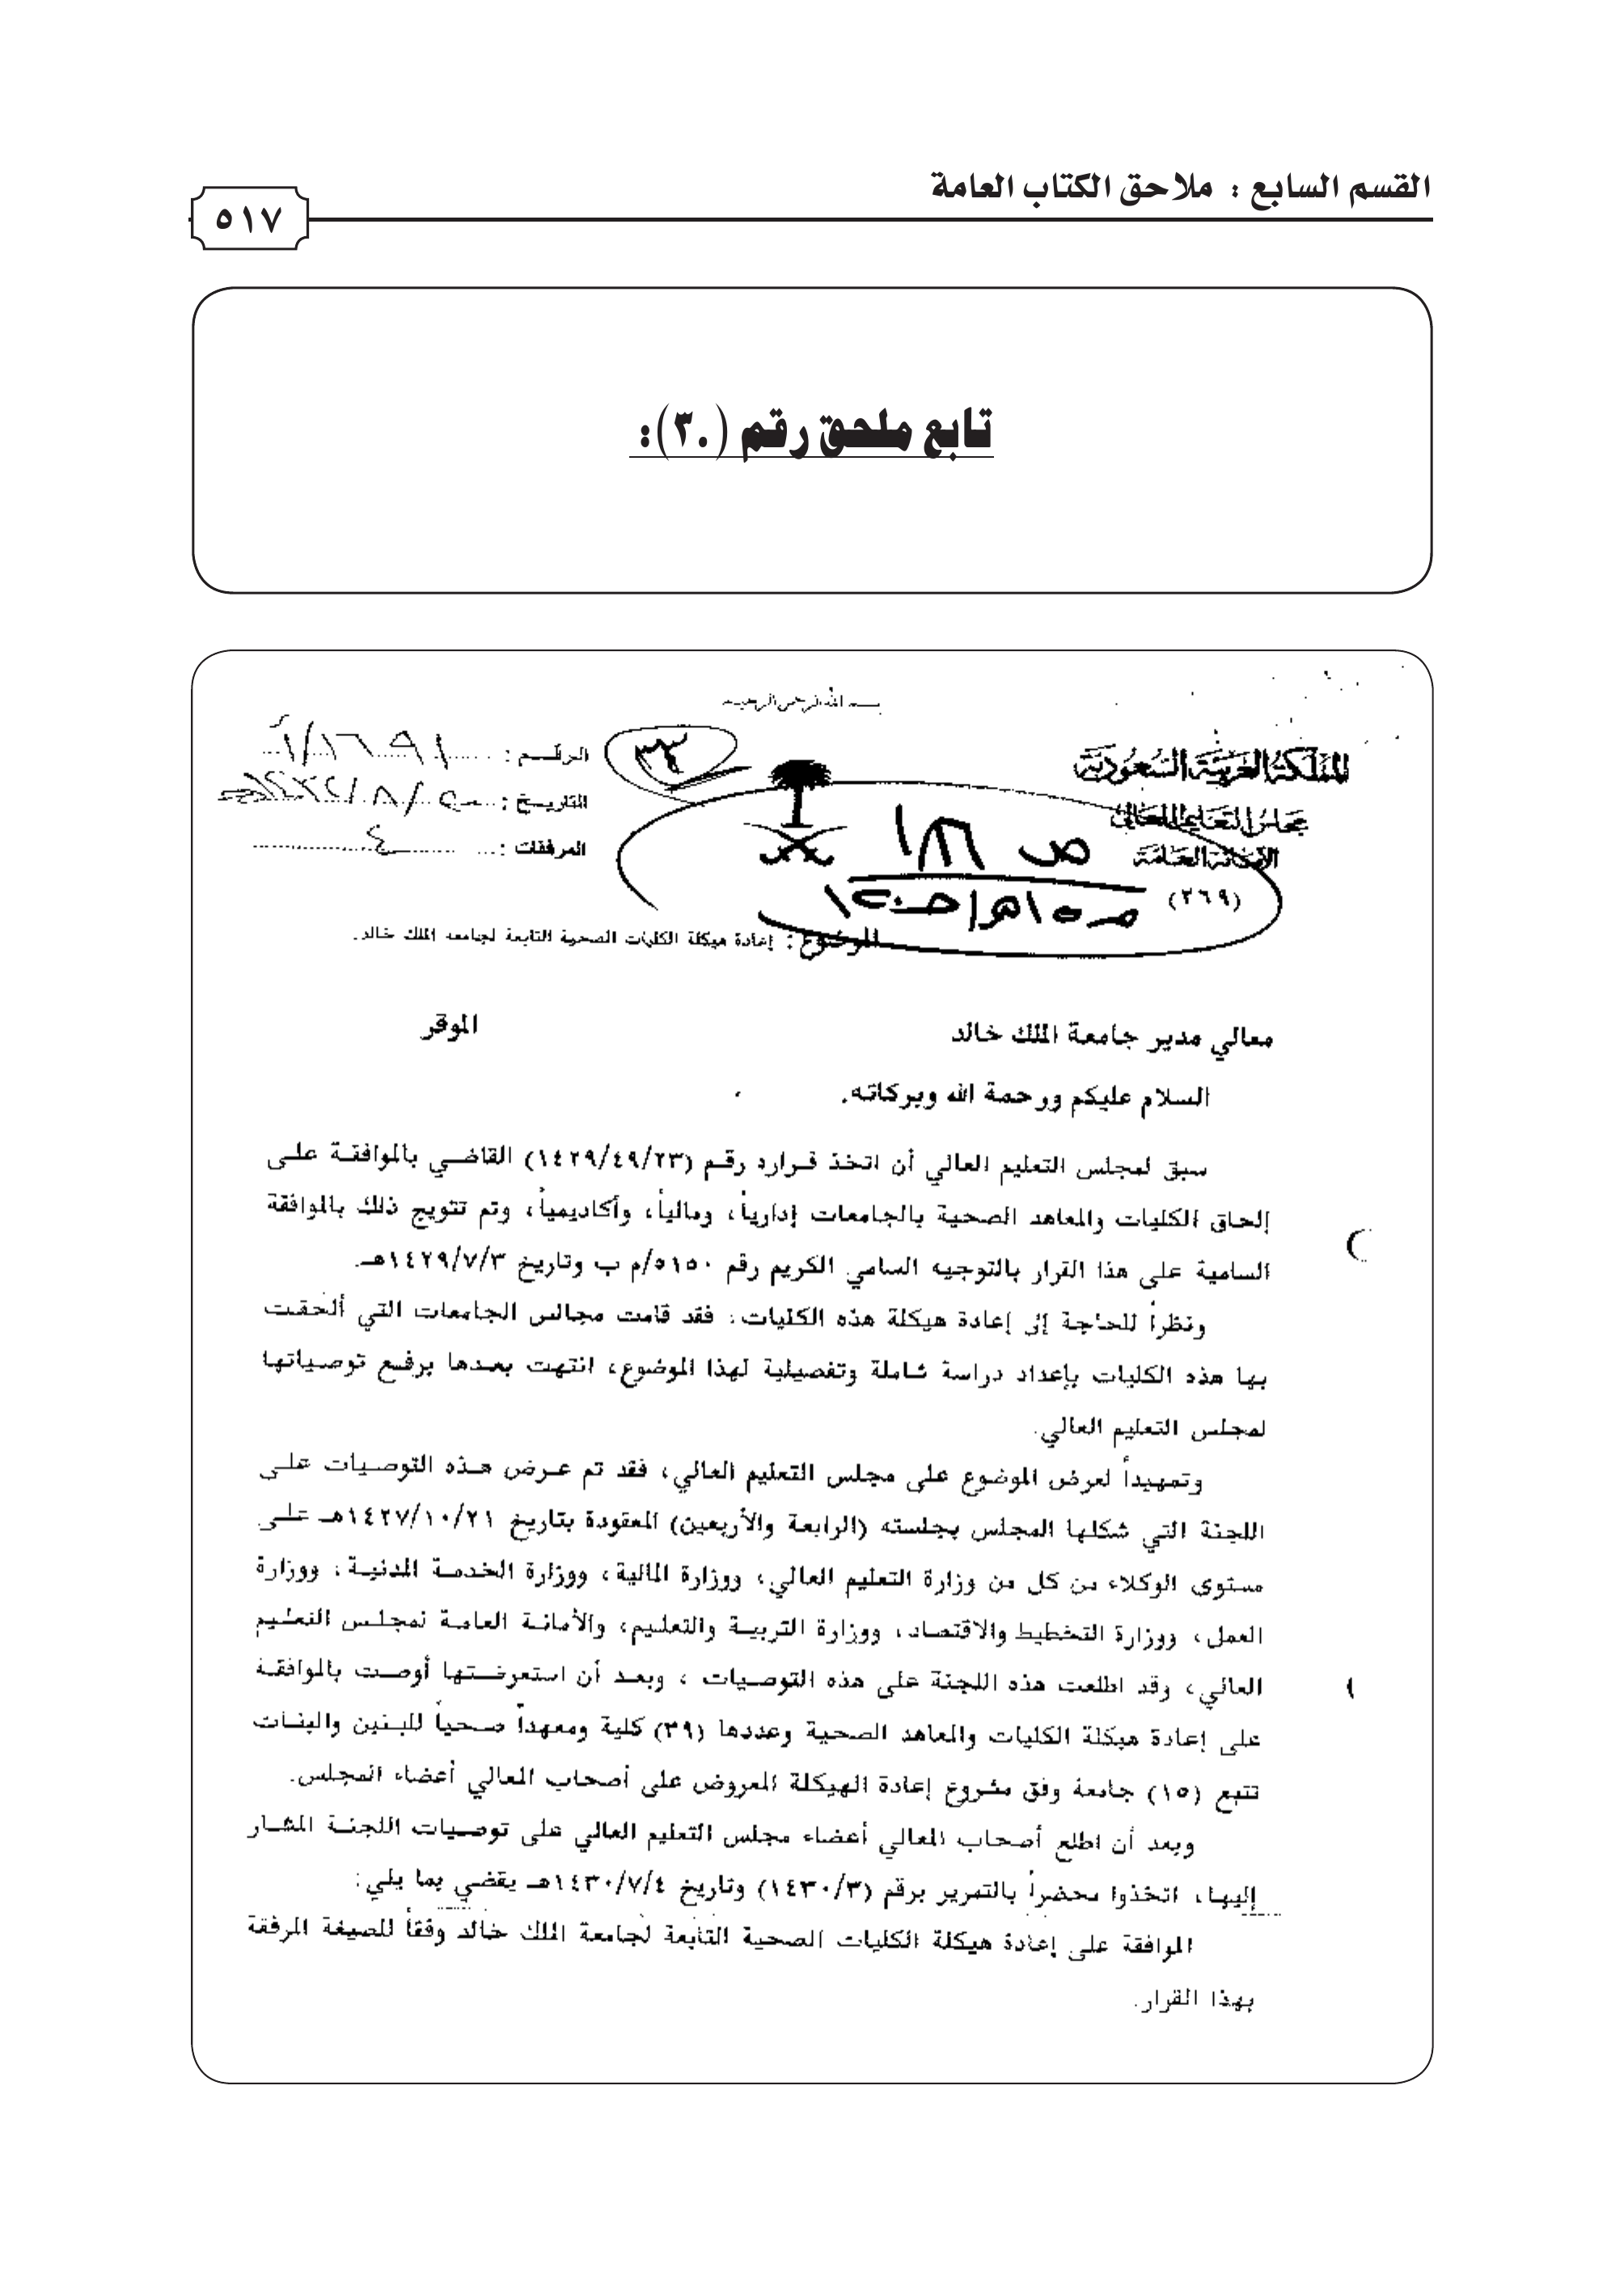 القسم السابع : ملاحق الكتاب العامة
٥١٧
تابع ملحق رقم (٣٠):
بسم الله الرحمن الرحيم
المملكة العربية السعودية
مجلس التعليم العالي
الأمانة العامة
(٢٦٩)
الرقم :
التاريخ :
المرفقات :
ص ١٨٦
الموضوع : إعادة هيكلة الكليات الصحية التابعة لجامعة الملك خالد.
معالي مدير جامعة الملك خالد الموقر
السلام عليكم ورحمة الله وبركاته.
سبق لمجلس التعليم العالي أن اتخذ قراره رقم (١٤٢٩/٤٩/٢٣) القاضي بالموافقة على
إلحاق الكليات والمعاهد الصحية بالجامعات إدارياً، ومالياً، وأكاديمياً، وتم تتويج ذلك بالموافقة
السامية على هذا القرار بالتوجيه السامي الكريم رقم ٥١٥٠/م ب وتاريخ ١٤٢٩/٧/٣هـ.
ونظراً للحاجة إلى إعادة هيكلة هذه الكليات، فقد قامت مجالس الجامعات التي ألحقت
بها هذه الكليات بإعداد دراسة شاملة وتفصيلية لهذا الموضوع، انتهت بعدها برفع توصياتها
لمجلس التعليم العالي.
وتمهيداً لعرض الموضوع على مجلس التعليم العالي، فقد تم عرض هذه التوصيات على
اللجنة التي شكلها المجلس بجلسته (الرابعة والأربعين) المعقودة بتاريخ ١٤٢٧/١٠/٢١هـ على
مستوى الوكلاء من كل من وزارة التعليم العالي، ووزارة المالية، ووزارة الخدمة المدنية، ووزارة
العمل، ووزارة التخطيط والاقتصاد، ووزارة التربية والتعليم، والأمانة العامة لمجلس التعليم
العالي، وقد اطلعت هذه اللجنة على هذه التوصيات ، وبعد أن استعرضتها أوصت بالموافقة
على إعادة هيكلة الكليات والمعاهد الصحية وعددها (٣٩) كلية ومعهداً صحياً للبنين والبنات
تتبع (١٥) جامعة وفق مشروع إعادة الهيكلة المعروض على أصحاب المعالي أعضاء المجلس.
وبعد أن اطلع أصحاب المعالي أعضاء مجلس التعليم العالي على توصيات اللجنة المشار
إليها، اتخذوا محضراً بالتمرير برقم (١٤٣٠/٣) وتاريخ ١٤٣٠/٧/٤هـ يقضي بما يلي:
الموافقة على إعادة هيكلة الكليات الصحية التابعة لجامعة الملك خالد وفقاً للصيغة المرفقة
بهذا القرار.